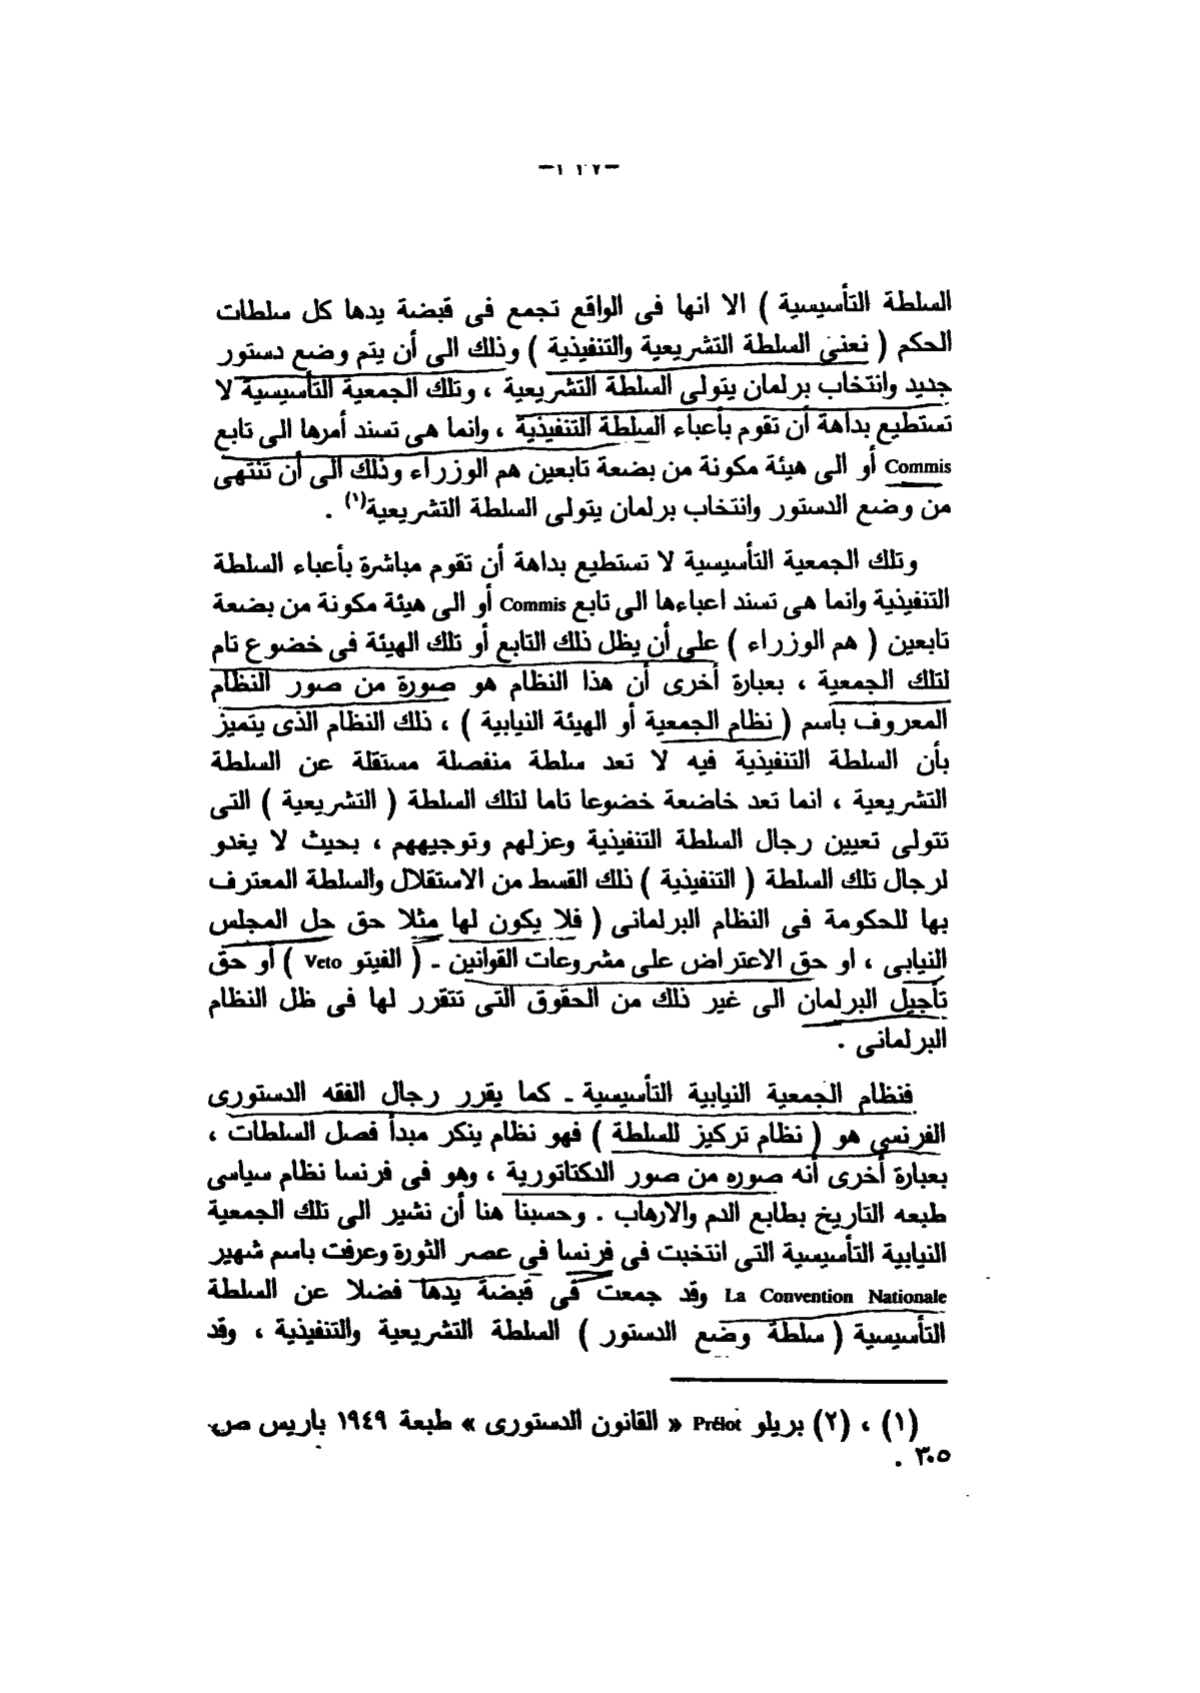 السلطة التأسيسية ) الا انها فى الواقع تجمع فى قبضة يدها كل سلطات
الحكم ( نعنى السلطة التشريعية والتنفيذية ) وذلك الى أن يتم وضع دستور
جديد وانتخاب برلمان يتولى السلطة التشريعية ، وتلك الجمعية التأسيسية لا
تستطيع بداهة أن تقوم بأعباء السلطة التنفيذية ، وانما هى تسند أمرها الى تابع
Commis أو الى هيئة مكونة من بضعة تابعين هم الوزراء وذلك الى أن تنتهى
من وضع الدستور وانتخاب برلمان يتولى السلطة التشريعية(١) .
وتلك الجمعية التأسيسية لا تستطيع بداهة أن تقوم مباشرة بأعباء السلطة
التنفيذية وانما هى تسند اعباءها الى تابع Commis أو الى هيئة مكونة من بضعة
تابعين ( هم الوزراء ) على أن يظل ذلك التابع أو تلك الهيئة فى خضوع تام
لتلك الجمعية ، بعبارة أخرى أن هذا النظام هو صورة من صور النظام
المعروف باسم ( نظام الجمعية أو الهيئة النيابية ) ، ذلك النظام الذى يتميز
بأن السلطة التنفيذية فيه لا تعد سلطة منفصلة مستقلة عن السلطة
التشريعية ، انما تعد خاضعة خضوعا تاما لتلك السلطة ( التشريعية ) التى
تتولى تعيين رجال السلطة التنفيذية وعزلهم وتوجيههم ، بحيث لا يغدو
لرجال تلك السلطة ( التنفيذية ) ذلك القسط من الاستقلال والسلطة المعترف
بها للحكومة فى النظام البرلمانى ( فلا يكون لها مثلا حق حل المجلس
النيابى ، او حق الاعتراض على مشروعات القوانين - ( الفيتو Veto ) أو حق
تأجيل البرلمان الى غير ذلك من الحقوق التى تتقرر لها فى ظل النظام
البرلمانى .
فنظام الجمعية النيابية التأسيسية - كما يقرر رجال الفقه الدستورى
الفرنسى هو ( نظام تركيز للسلطة ) فهو نظام ينكر مبدأ فصل السلطات ،
بعبارة أخرى أنه صوره من صور الدكتاتورية ، وهو فى فرنسا نظام سياسى
طبعه التاريخ بطابع الدم والارهاب . وحسبنا هنا أن نشير الى تلك الجمعية
النيابية التأسيسية التى انتخبت فى فرنسا فى عصر الثورة وعرفت باسم شهير
La Convention Nationale وقد جمعت فى قبضة يدها فضلا عن السلطة
التأسيسية ( سلطة وضع الدستور ) السلطة التشريعية والتنفيذية ، وقد
(١) ، (٢) بريلو Prélot « القانون الدستورى » طبعة ١٩٤٩ باريس ص
٣٠٥ .